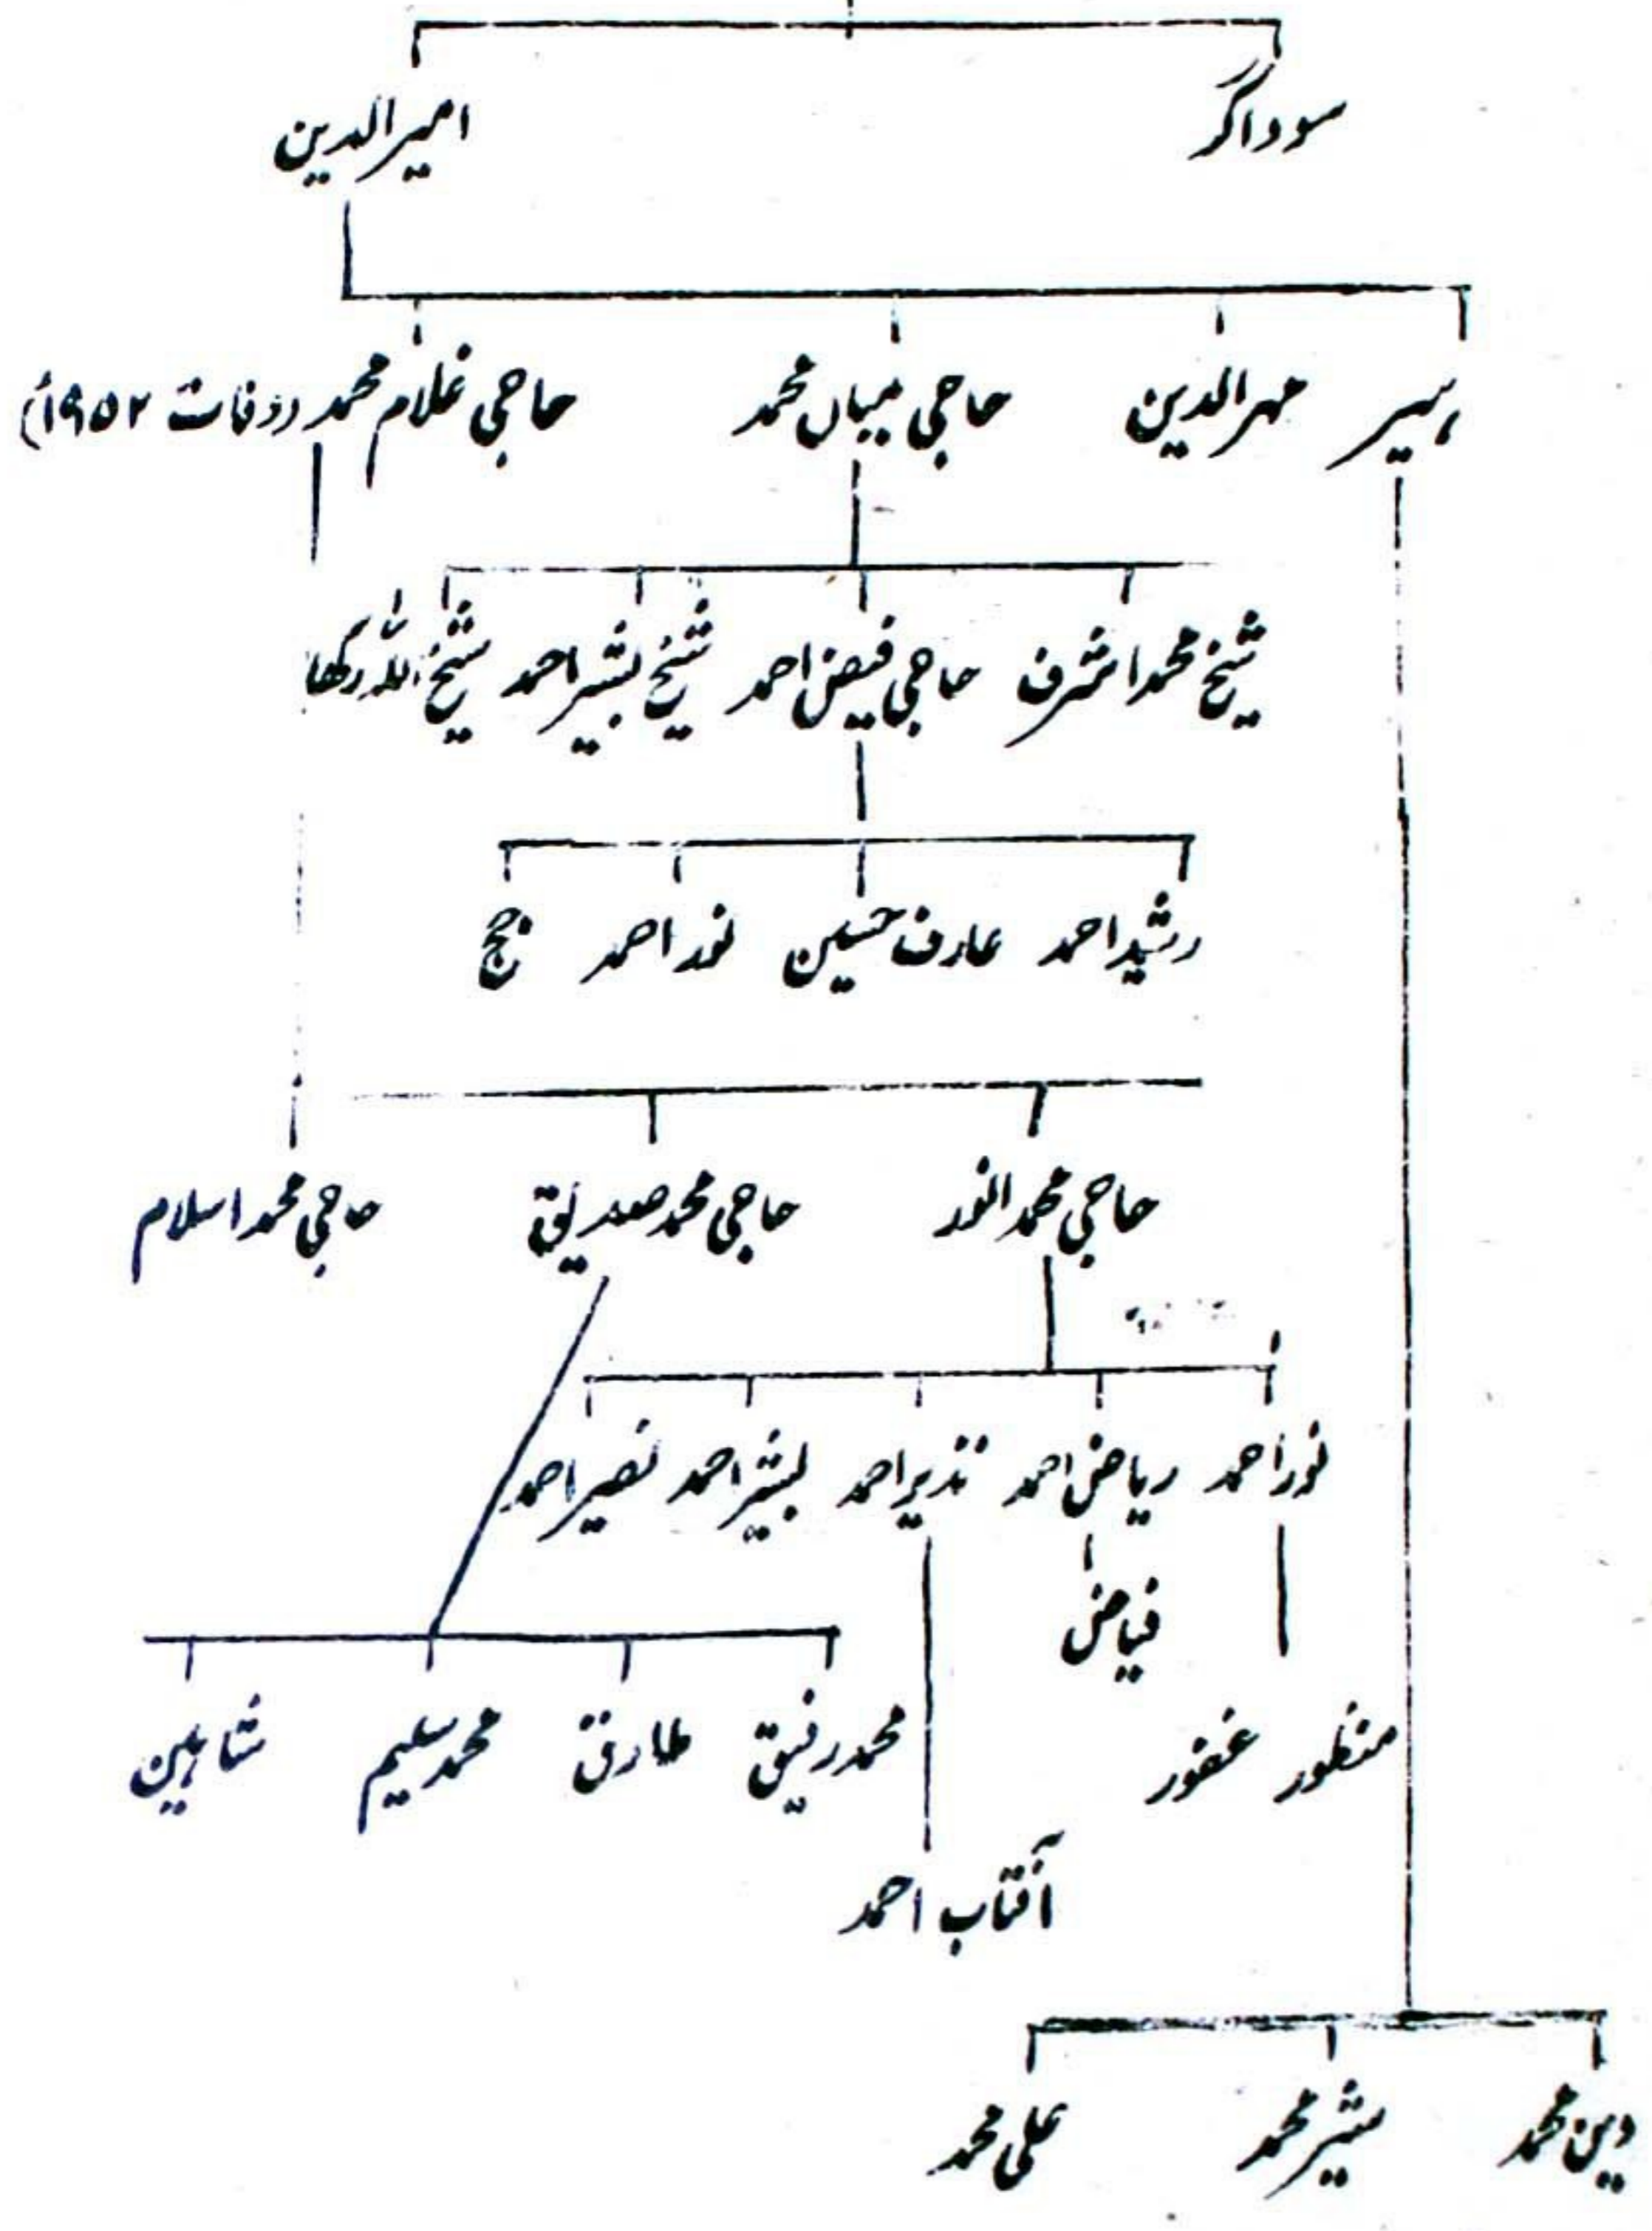 سوداگر امیرالدین
مہرالدین حاجی میاں محمد حاجی غلام محمد (وفات ۱۹۵۲ء)
شیخ محمد اشرف حاجی فیض احمد شیخ بشیر احمد شیخ اللہ رکھا
رشید احمد عارف حسین نور احمد
حاجی محمد انور حاجی محمد صدیق حاجی محمد اسلام
نور احمد ریاض احمد نذیر احمد بشیر احمد نصیر احمد
فیاض
منظور غفور محمد رفیق طارق محمد سلیم شاہین
آفتاب احمد
دین محمد شیر محمد علی محمد